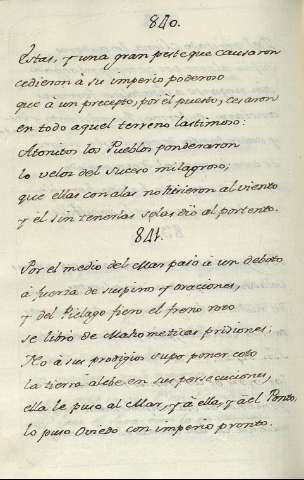 840.
Estas, y una gran peste que causaron
cedieron à su imperio poderoso
que à un precepto, por él puesto, cesaron
en todo aquel terreno lastimoso:
Atonitos los Pueblos ponderaron
lo velos del suceso milagroso;
que ellas con alas no hirieron al viento
y él sin tenerlas solas dio al portento.
841.
Por el medio del Mar pasò à un deboto
à fuerza de suspiros y oraciones,
y del Pielago fiero el freno roto
se libro de Mahometicas prisiones;
No à sus prodigios supo poner coto
la tierra alebe en sus persecuciones,
ella le puso al Mar, y à ella, y àel Ponto,
lo puso Oviedo con imperio pronto.